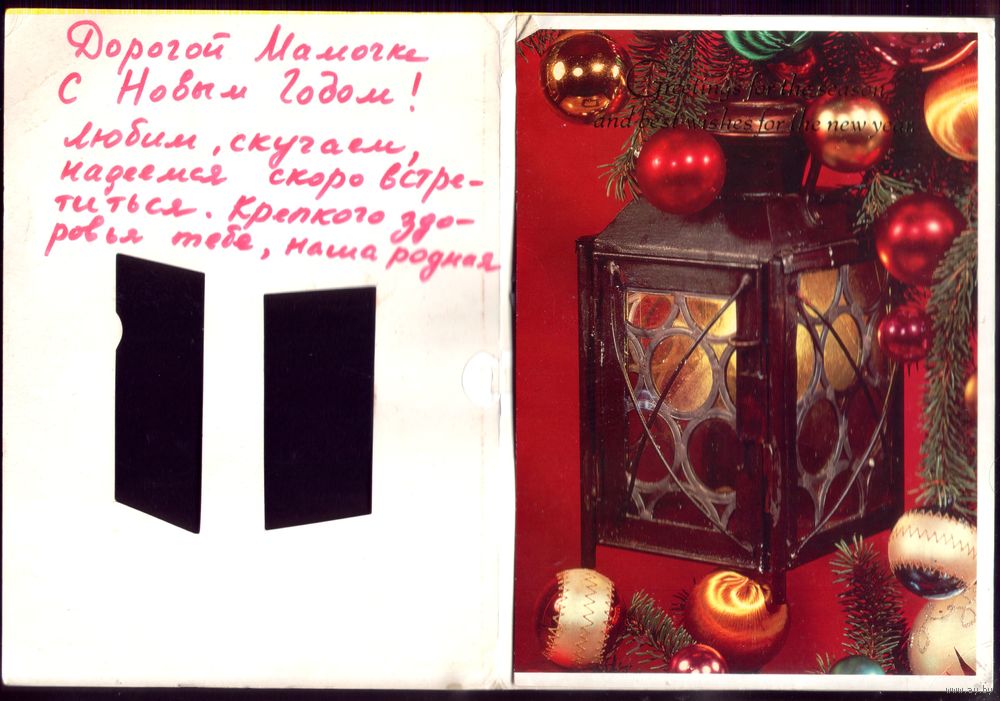 Дорогой Мамочке
С Новым Годом!
Любим, скучаем,
надеемся скоро встре-
титься. Крепкого здо-
ровья тебе, наша родная
Greetings for the season
and best wishes for the new year
www.ay.by